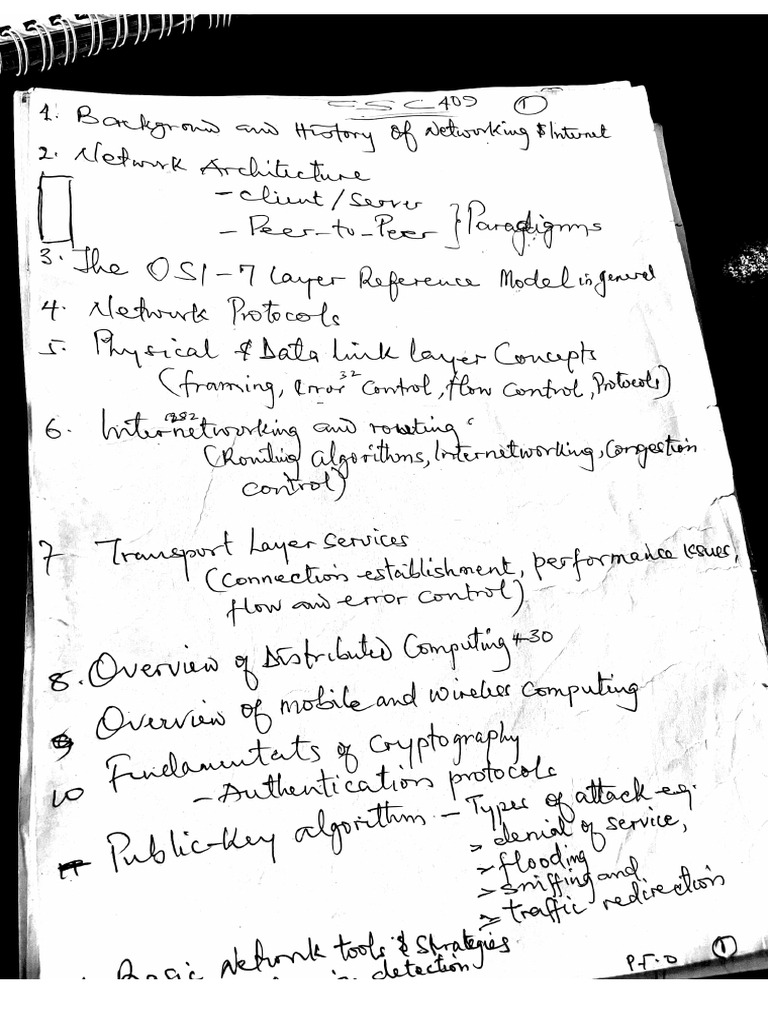 CSC 409 ①
1. Background and History of Networking & Internet
2. Network Architecture
- Client/Server
- Peer-to-Peer } Paradigms
3. The OSI-7 Layer Reference Model in general
4. Network Protocols
5. Physical & Data link layer Concepts
(framing, error 32 control, flow control, Protocols)
6. Internetworking and routing
(Routing algorithms, Internetworking, Congestion
control)
7 Transport Layer Services
(Connection establishment, performance issues,
flow and error control)
8. Overview of Distributed Computing +30
9 Overview of mobile and wireless computing
10 Fundamentals of Cryptography
- Authentication protocols
11 Public-key algorithm - Types of attack e.g.
> denial of service,
> flooding
> sniffing and
> traffic redirection
Basic Network tools & Strategies
detection
P.T.O ①